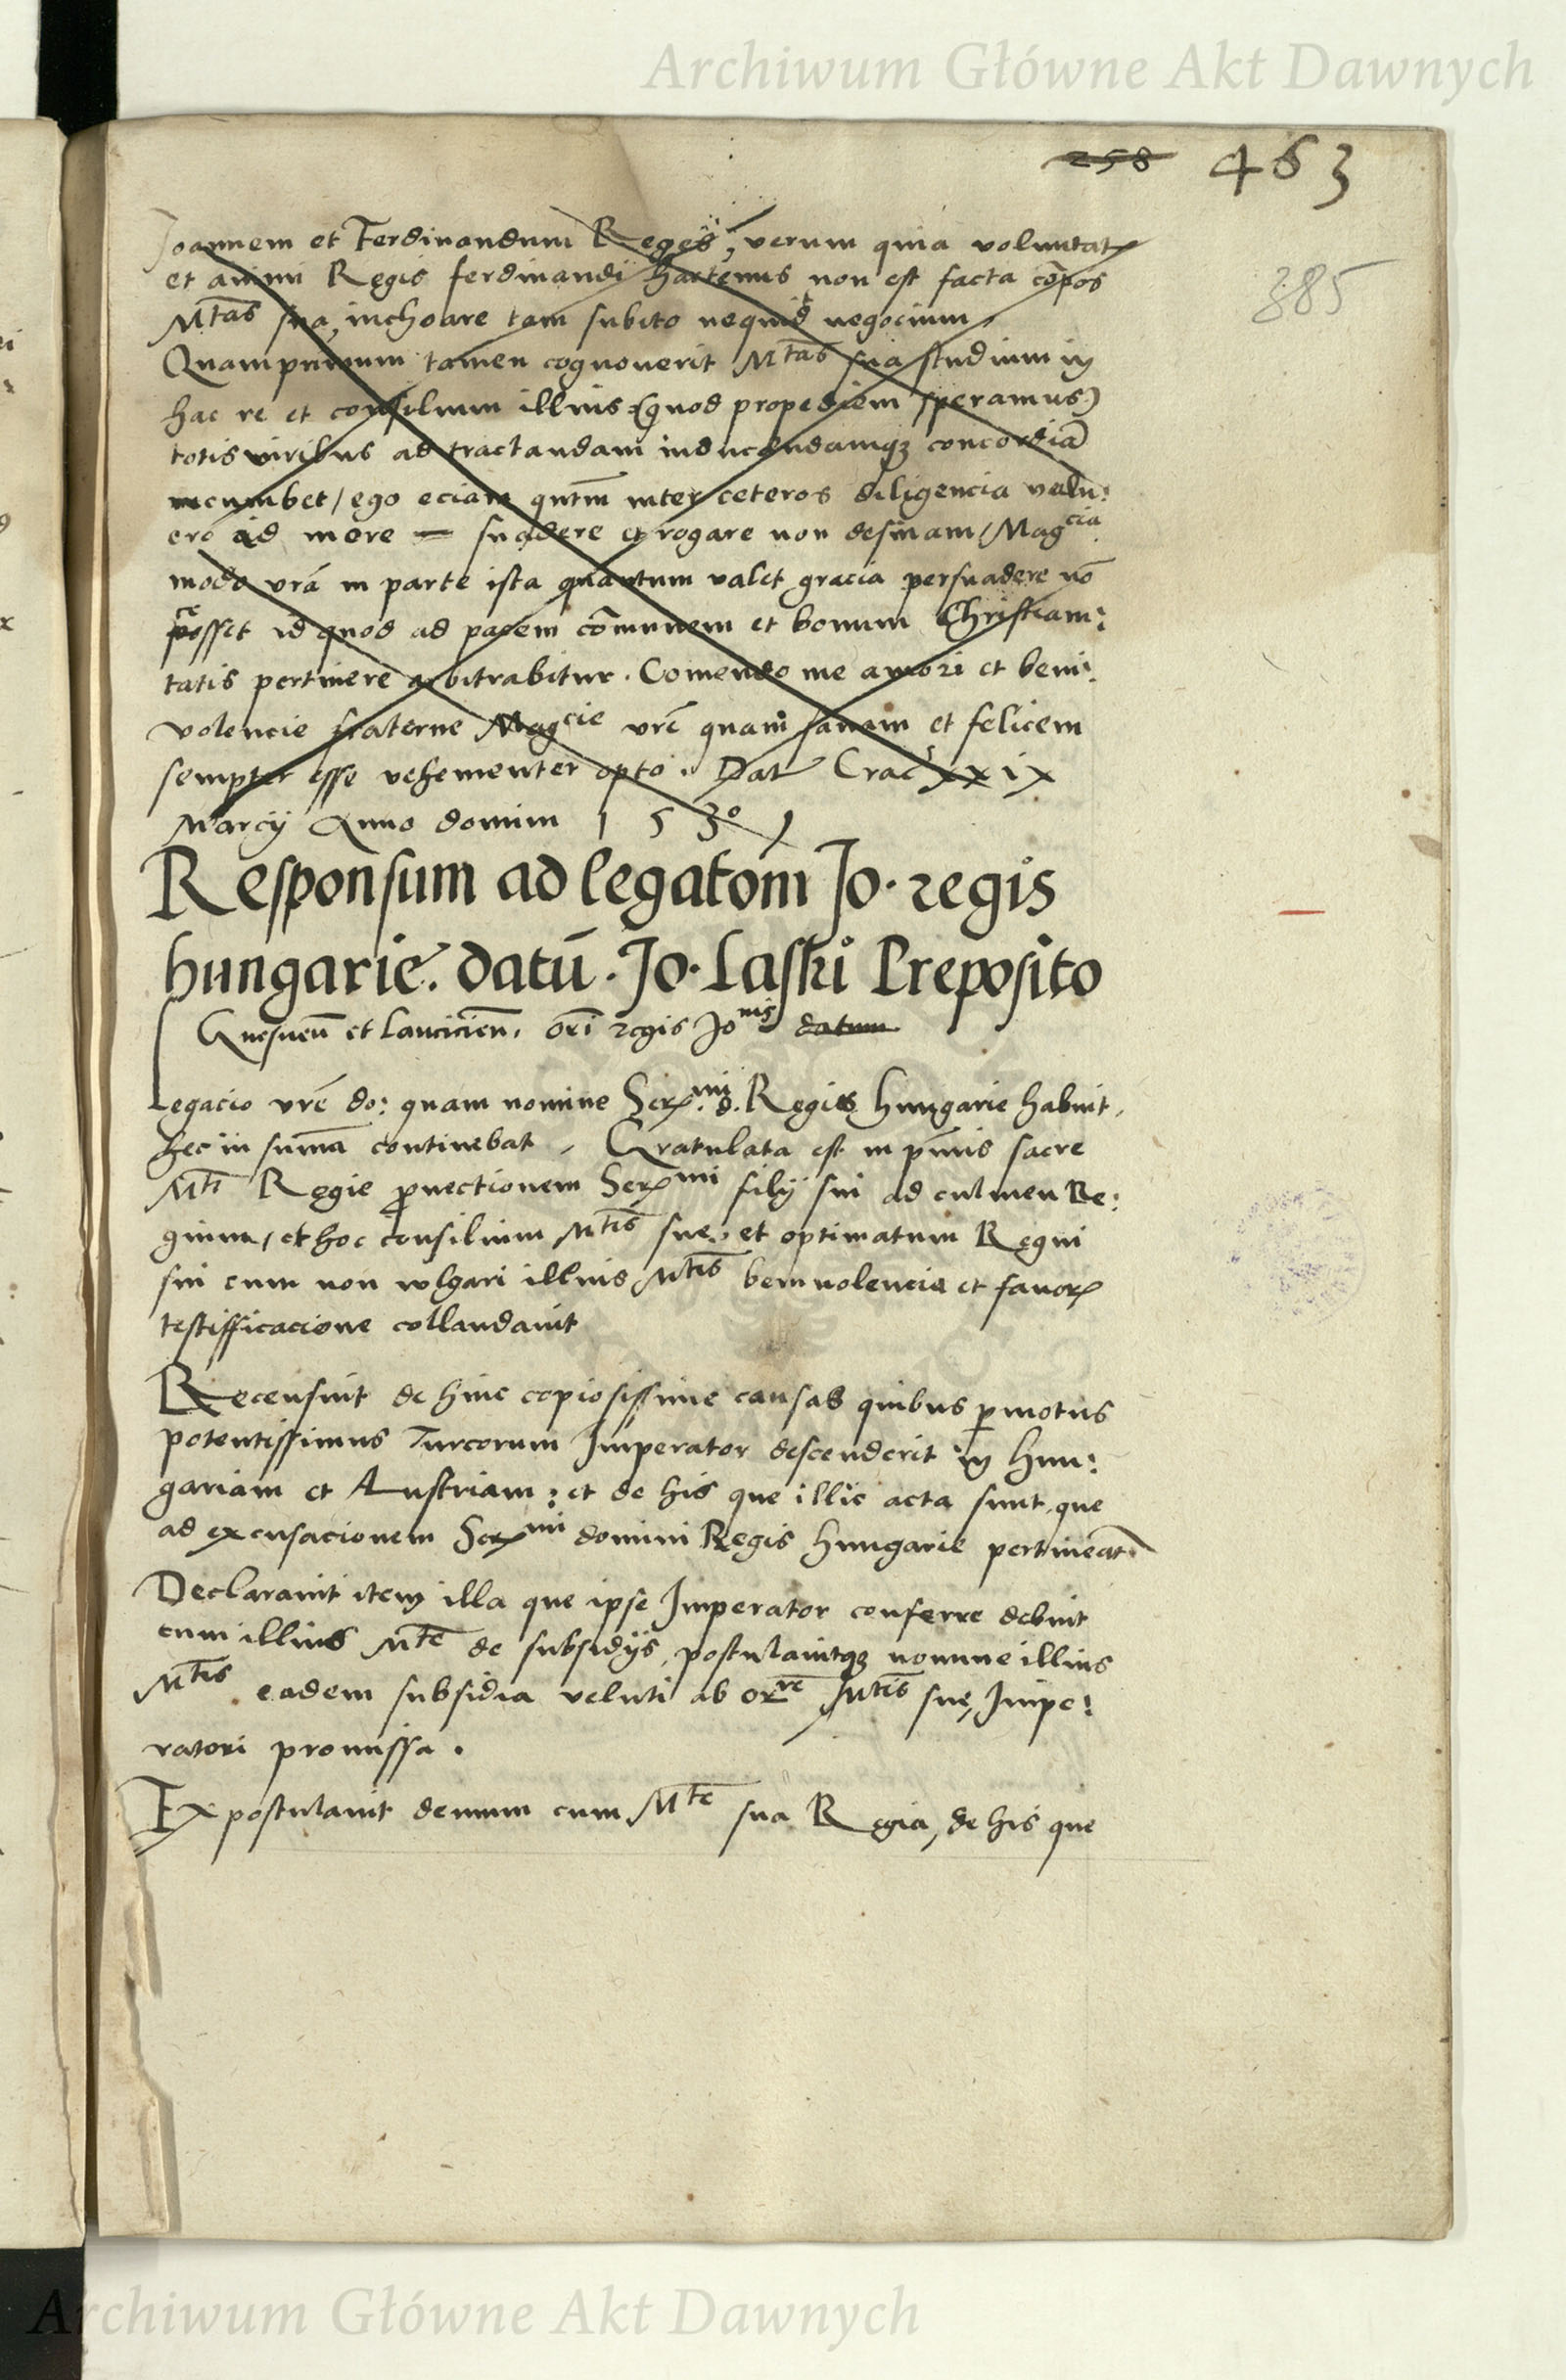 Archiwum Główne Akt Dawnych
258 463
385
Joannem et Ferdinandum Reges, verum quia voluntat
et animi Regis ferdinandi hactenus non est facta cōpos
Mtas sua, inchoare tam subito nequid negocium,
Quamprimum tamen cognouerit Mtas sua studium in
hac re et consilium illius (quod propediem speramus)
totis viribus ad tractandam inducendamqꝫ concordiā
incumbet / ego eciam qntm inter ceteros diligencia valu:
ero id more — suadere et rogare non desinam / Magcia
modo vrā in parte ista quantum valet gracia persuadere nō
posset id quod ad pacem cōmunem et bonum Christiani:
tatis pertinere arbitrabitur. Comendo me amori et beni:
volencie fraterne Magcie vrē quam sanam et felicem
semper esse vehementer opto. Dat Crac xxix
Marcij Anno domini 1530
Responsum ad legatom Jo. regis
hungarie. datū. Jo. Laski Preposito
Gnesneñ et Lancicieñ. orī regis Jonis datum
Legacio vrē do: quam nomine Sermi d. Regis hungarie habuit,
hec in summa continebat, Gratulata est in pmis sacre
Mti Regie puectionem Sermi filij sui ad culmen Re:
gium, et hoc consilium Mtis sue, et optimatum Regni
sui cum non wlgari illius Mtis beniuolencie et fauor
testifficacione collaudauit
Recensuit de hinc copiosissime causas quibus pmotus
potentissimus Turcorum Imperator descenderit in Hun:
gariam et Austriam: et de his que illic acta sunt, que
ad excusacionem Sermi domini Regis hungarie pertineāt
Declarauit item illa que ipse Imperator conferre debuit
cum illius Mte de subsidijs, postulauitqꝫ nomine illius
Mtis eadem subsidia veluti ab orre Mtis sue, Impe:
ratori promissa.
Expostulauit demum cum Mte sua Regia, de his que
Archiwum Główne Akt Dawnych